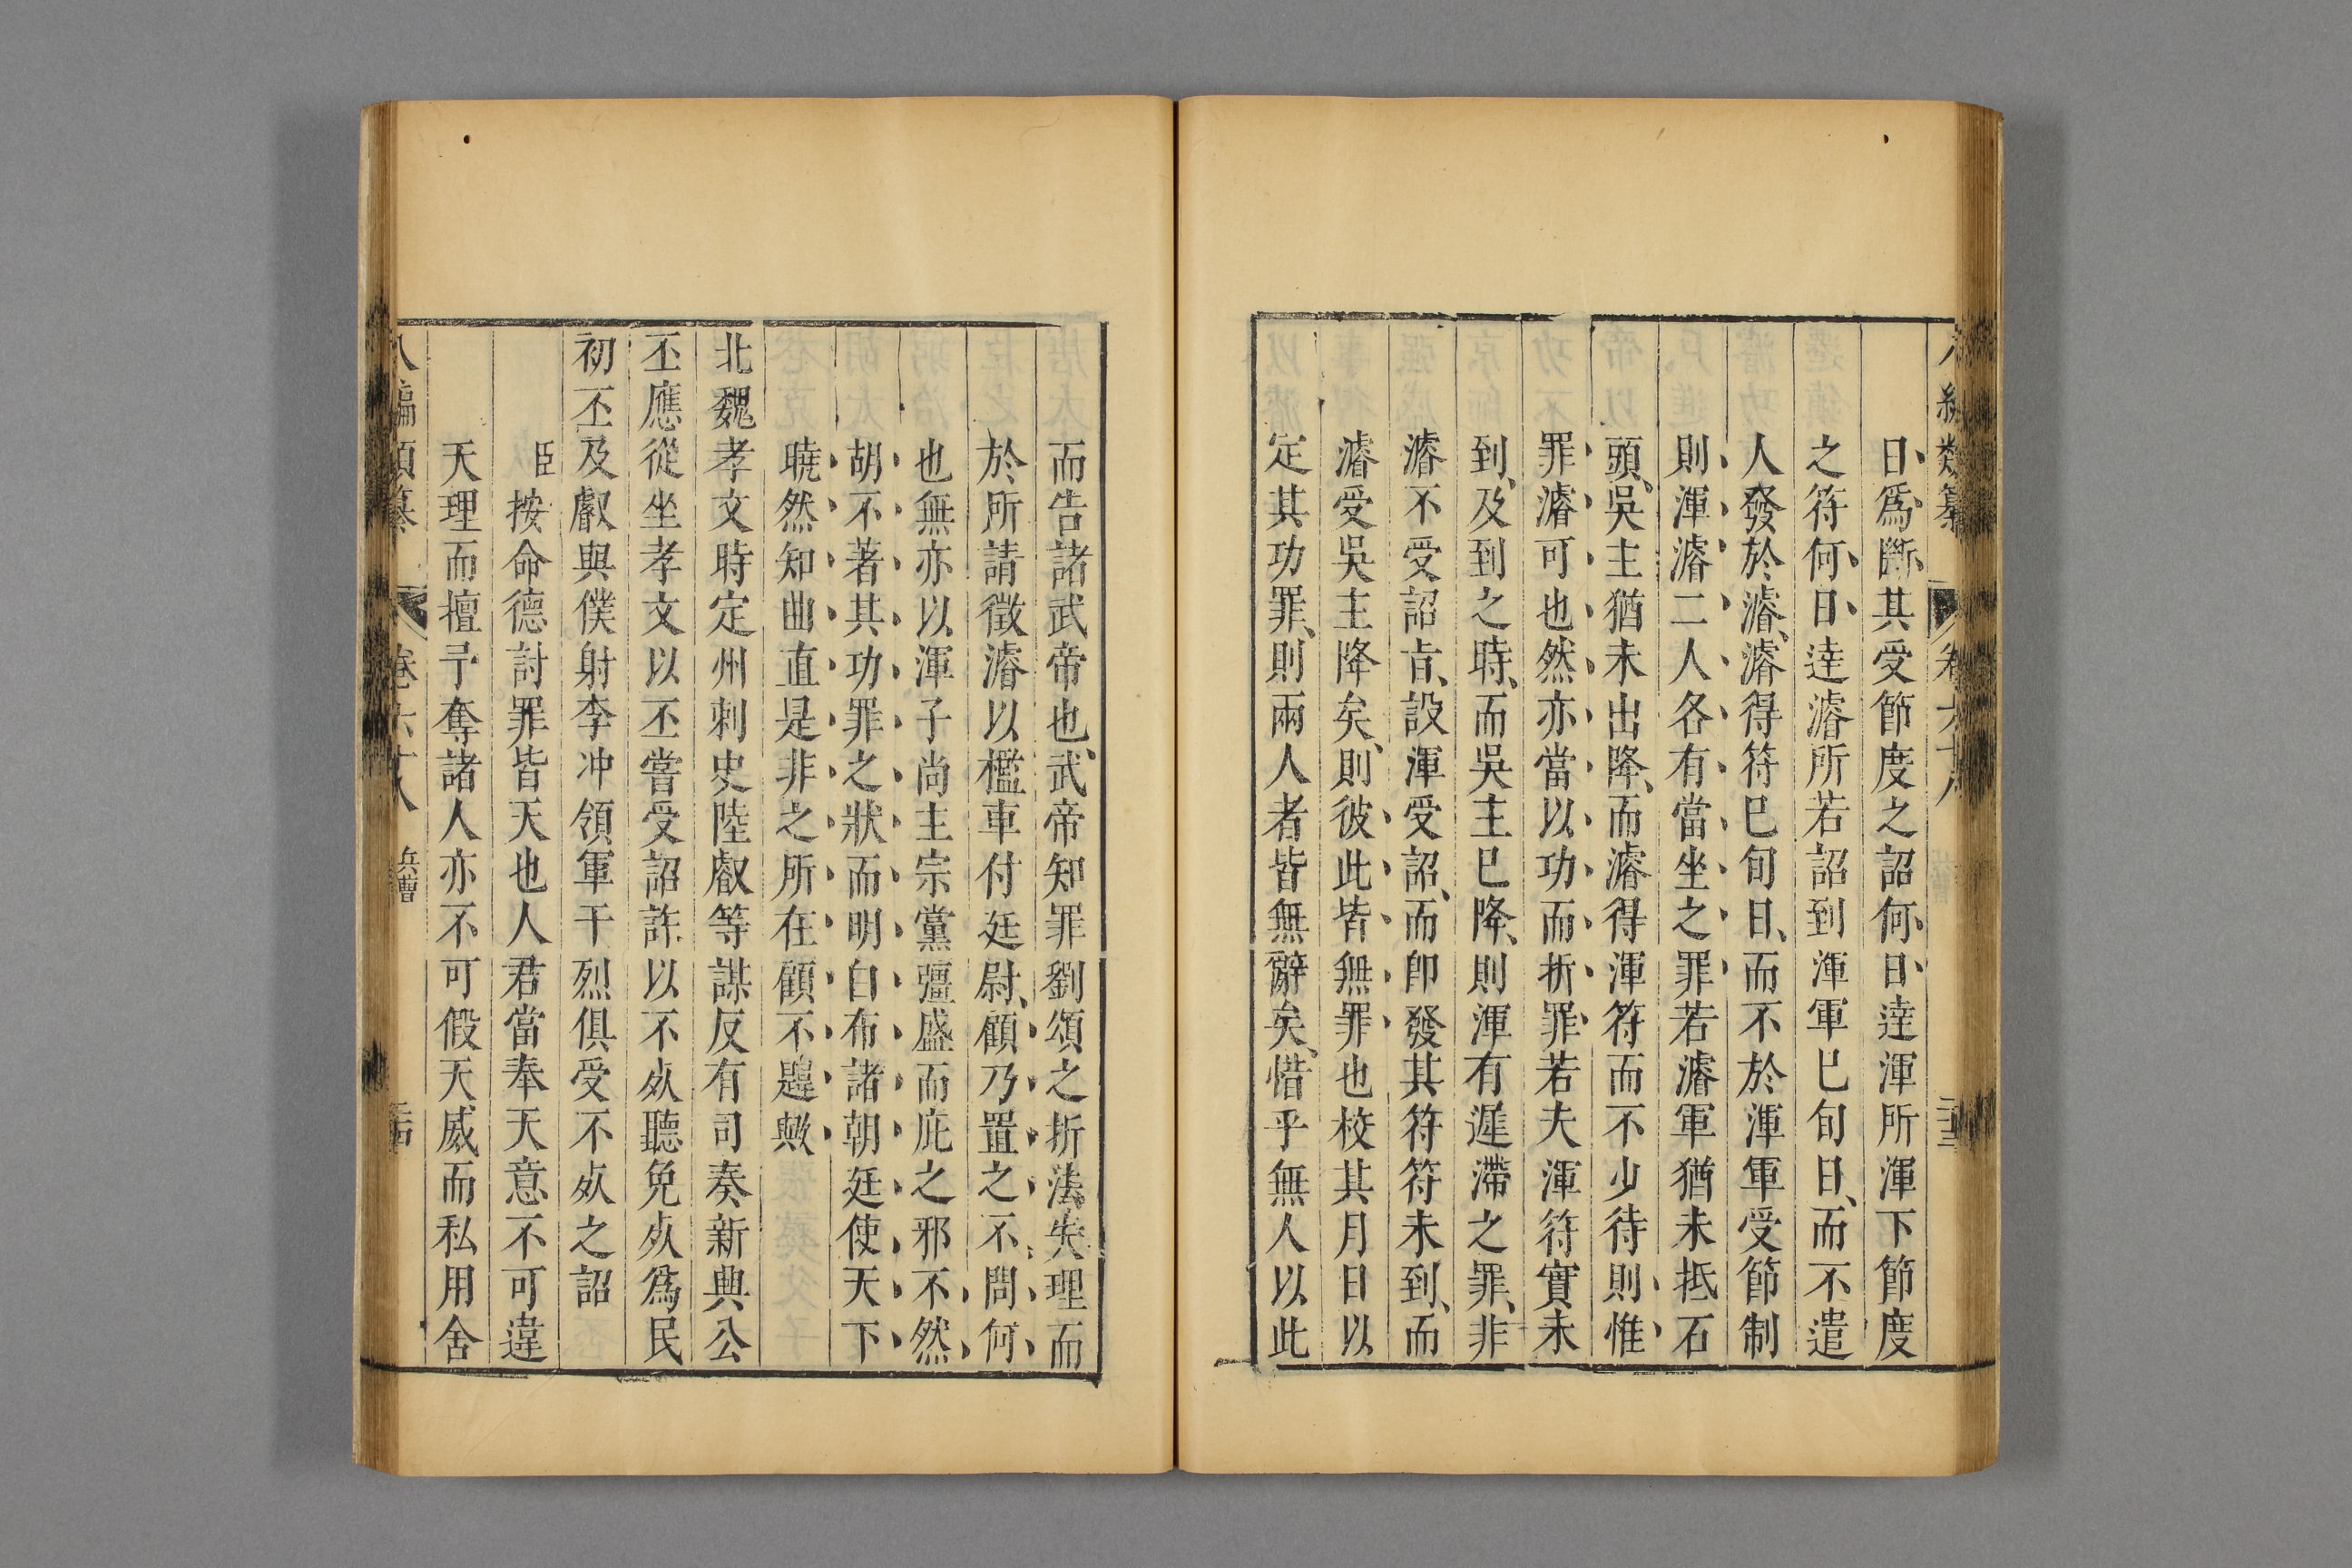 八編類纂 卷六十八 二十三
曰爲斷其受節度之詔何曰逹渾所渾下節度
之符何曰逹濬所若詔到渾軍已旬日而不遣
人發於濬濬得符已旬日而不於渾軍受節制
則渾濬二人各有當坐之罪若濬軍猶未抵石
頭吳主猶未出降而濬得渾符而不少待則惟
罪濬可也然亦當以功而折罪若夫渾符實未
到及到之時而吳主已降則渾有遲滯之罪非
濬不受詔㫖設渾受詔而卽發其符符未到而
濬受吳主降矣則彼此皆無罪也校其月日以
定其功罪則兩人者皆無辭矣惜乎無人以此
而告諸武帝也武帝知罪劉頌之折法失理而
於所請徵濬以檻車付廷尉顧乃置之不問何
也無亦以渾子尚主宗黨彊盛而庇之邪不然
胡不著其功罪之狀而明白布諸朝廷使天下
曉然知曲直是非之所在顧不韙歟
北魏孝文時定州刺史陸叡等謀反有司奏新興公
丕應從坐孝文以丕嘗受詔許以不𣦸聽免𣦸爲民
初丕及叡與僕射李冲領軍于烈俱受不𣦸之詔
臣按命德討罪皆天也人君當奉天意不可違
天理而擅予奪諸人亦不可假天威而私用舍
八編類纂 卷六十八 兵曹 二十四